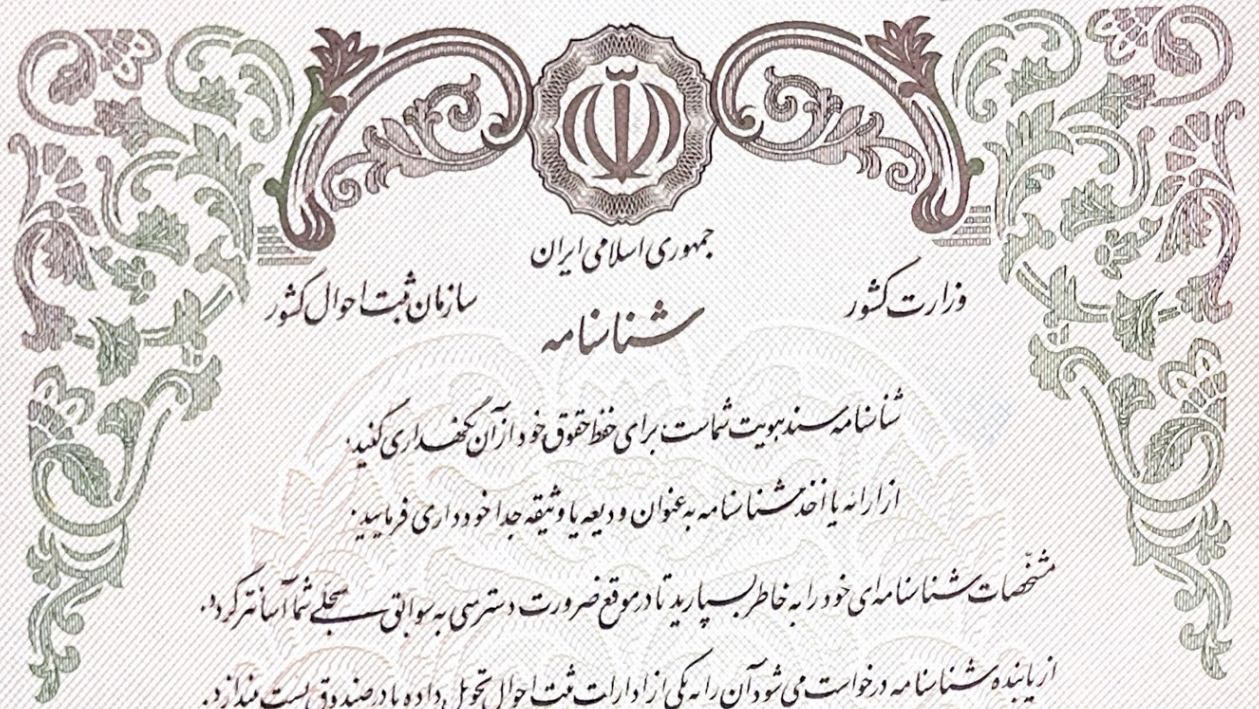 جمهوری اسلامی ایران
وزارت کشور
سازمان ثبت احوال کشور
شناسنامه
شناسنامه سند هویت شماست برای حفظ حقوق خود از آن نگهداری کنید.
از ارائه یا أخذ شناسنامه به عنوان ودیعه یا وثیقه جدا خودداری فرمایید.
مشخّصات شناسنامه‌ای خود را به خاطر بسپارید تا در موقع ضرورت دسترسی به سوابق سجلی شما آسانتر گردد.
از یابنده شناسنامه درخواست می شود آن را به یکی از ادارات ثبت احوال تحویل داده یا در صندوق پست بیندازد.